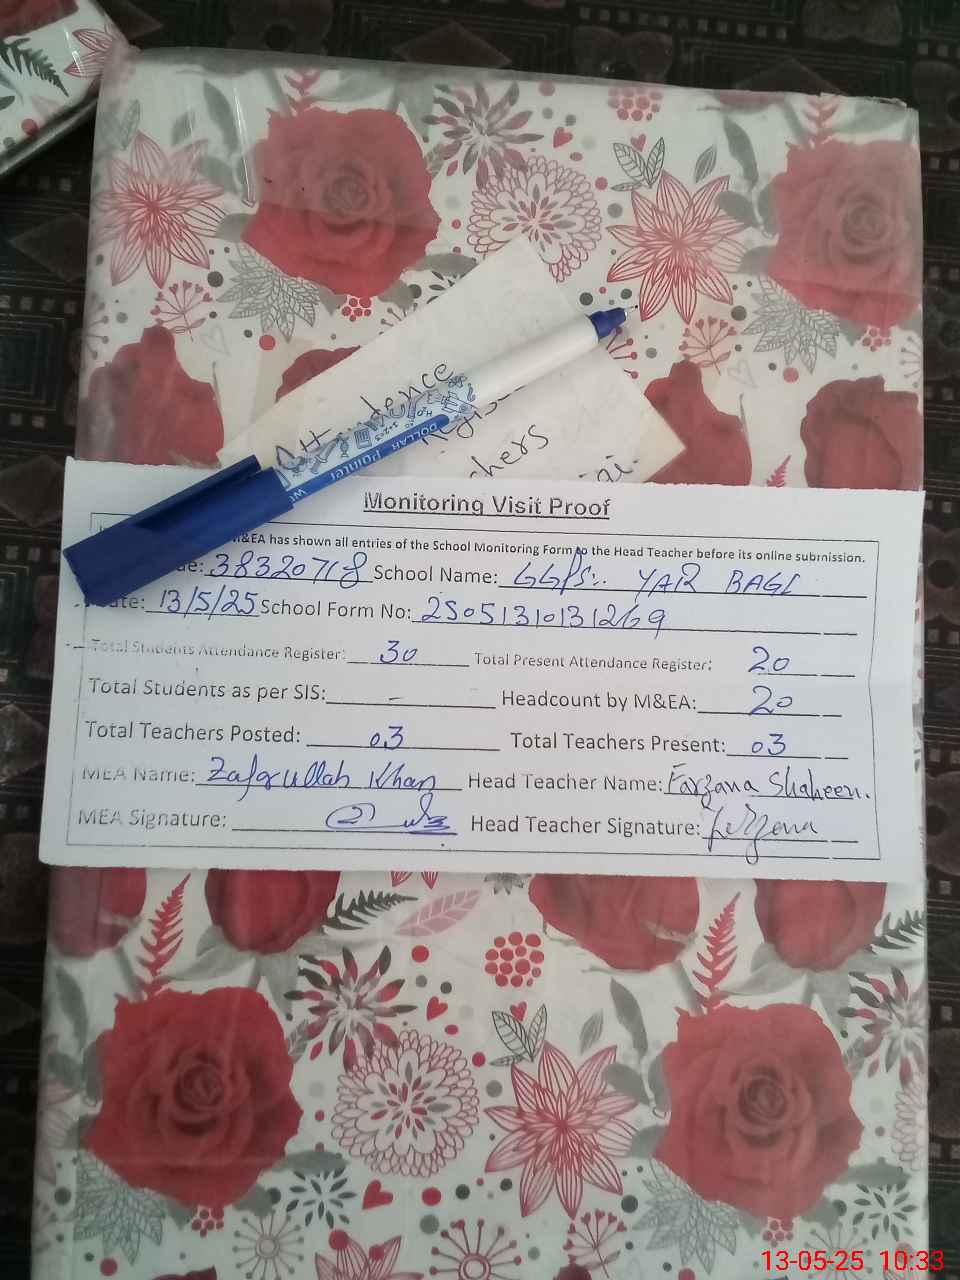 Attendence
Regis
chers
DOLLAR Pointer
Monitoring Visit Proof
M&EA has shown all entries of the School Monitoring Form to the Head Teacher before its online submission.
38320718 School Name: GGPS:. YAR BAGI
Date: 13/5/25 School Form No: 25051310131269
Total Students Attendance Register: 30 Total Present Attendance Register: 20
Total Students as per SIS: - Headcount by M&EA: 20
Total Teachers Posted: 03 Total Teachers Present: 03
MEA Name: Zafarullah Khan Head Teacher Name: Farzana Shaheen.
MEA Signature: Head Teacher Signature: Farzana
13-05-25 10:33